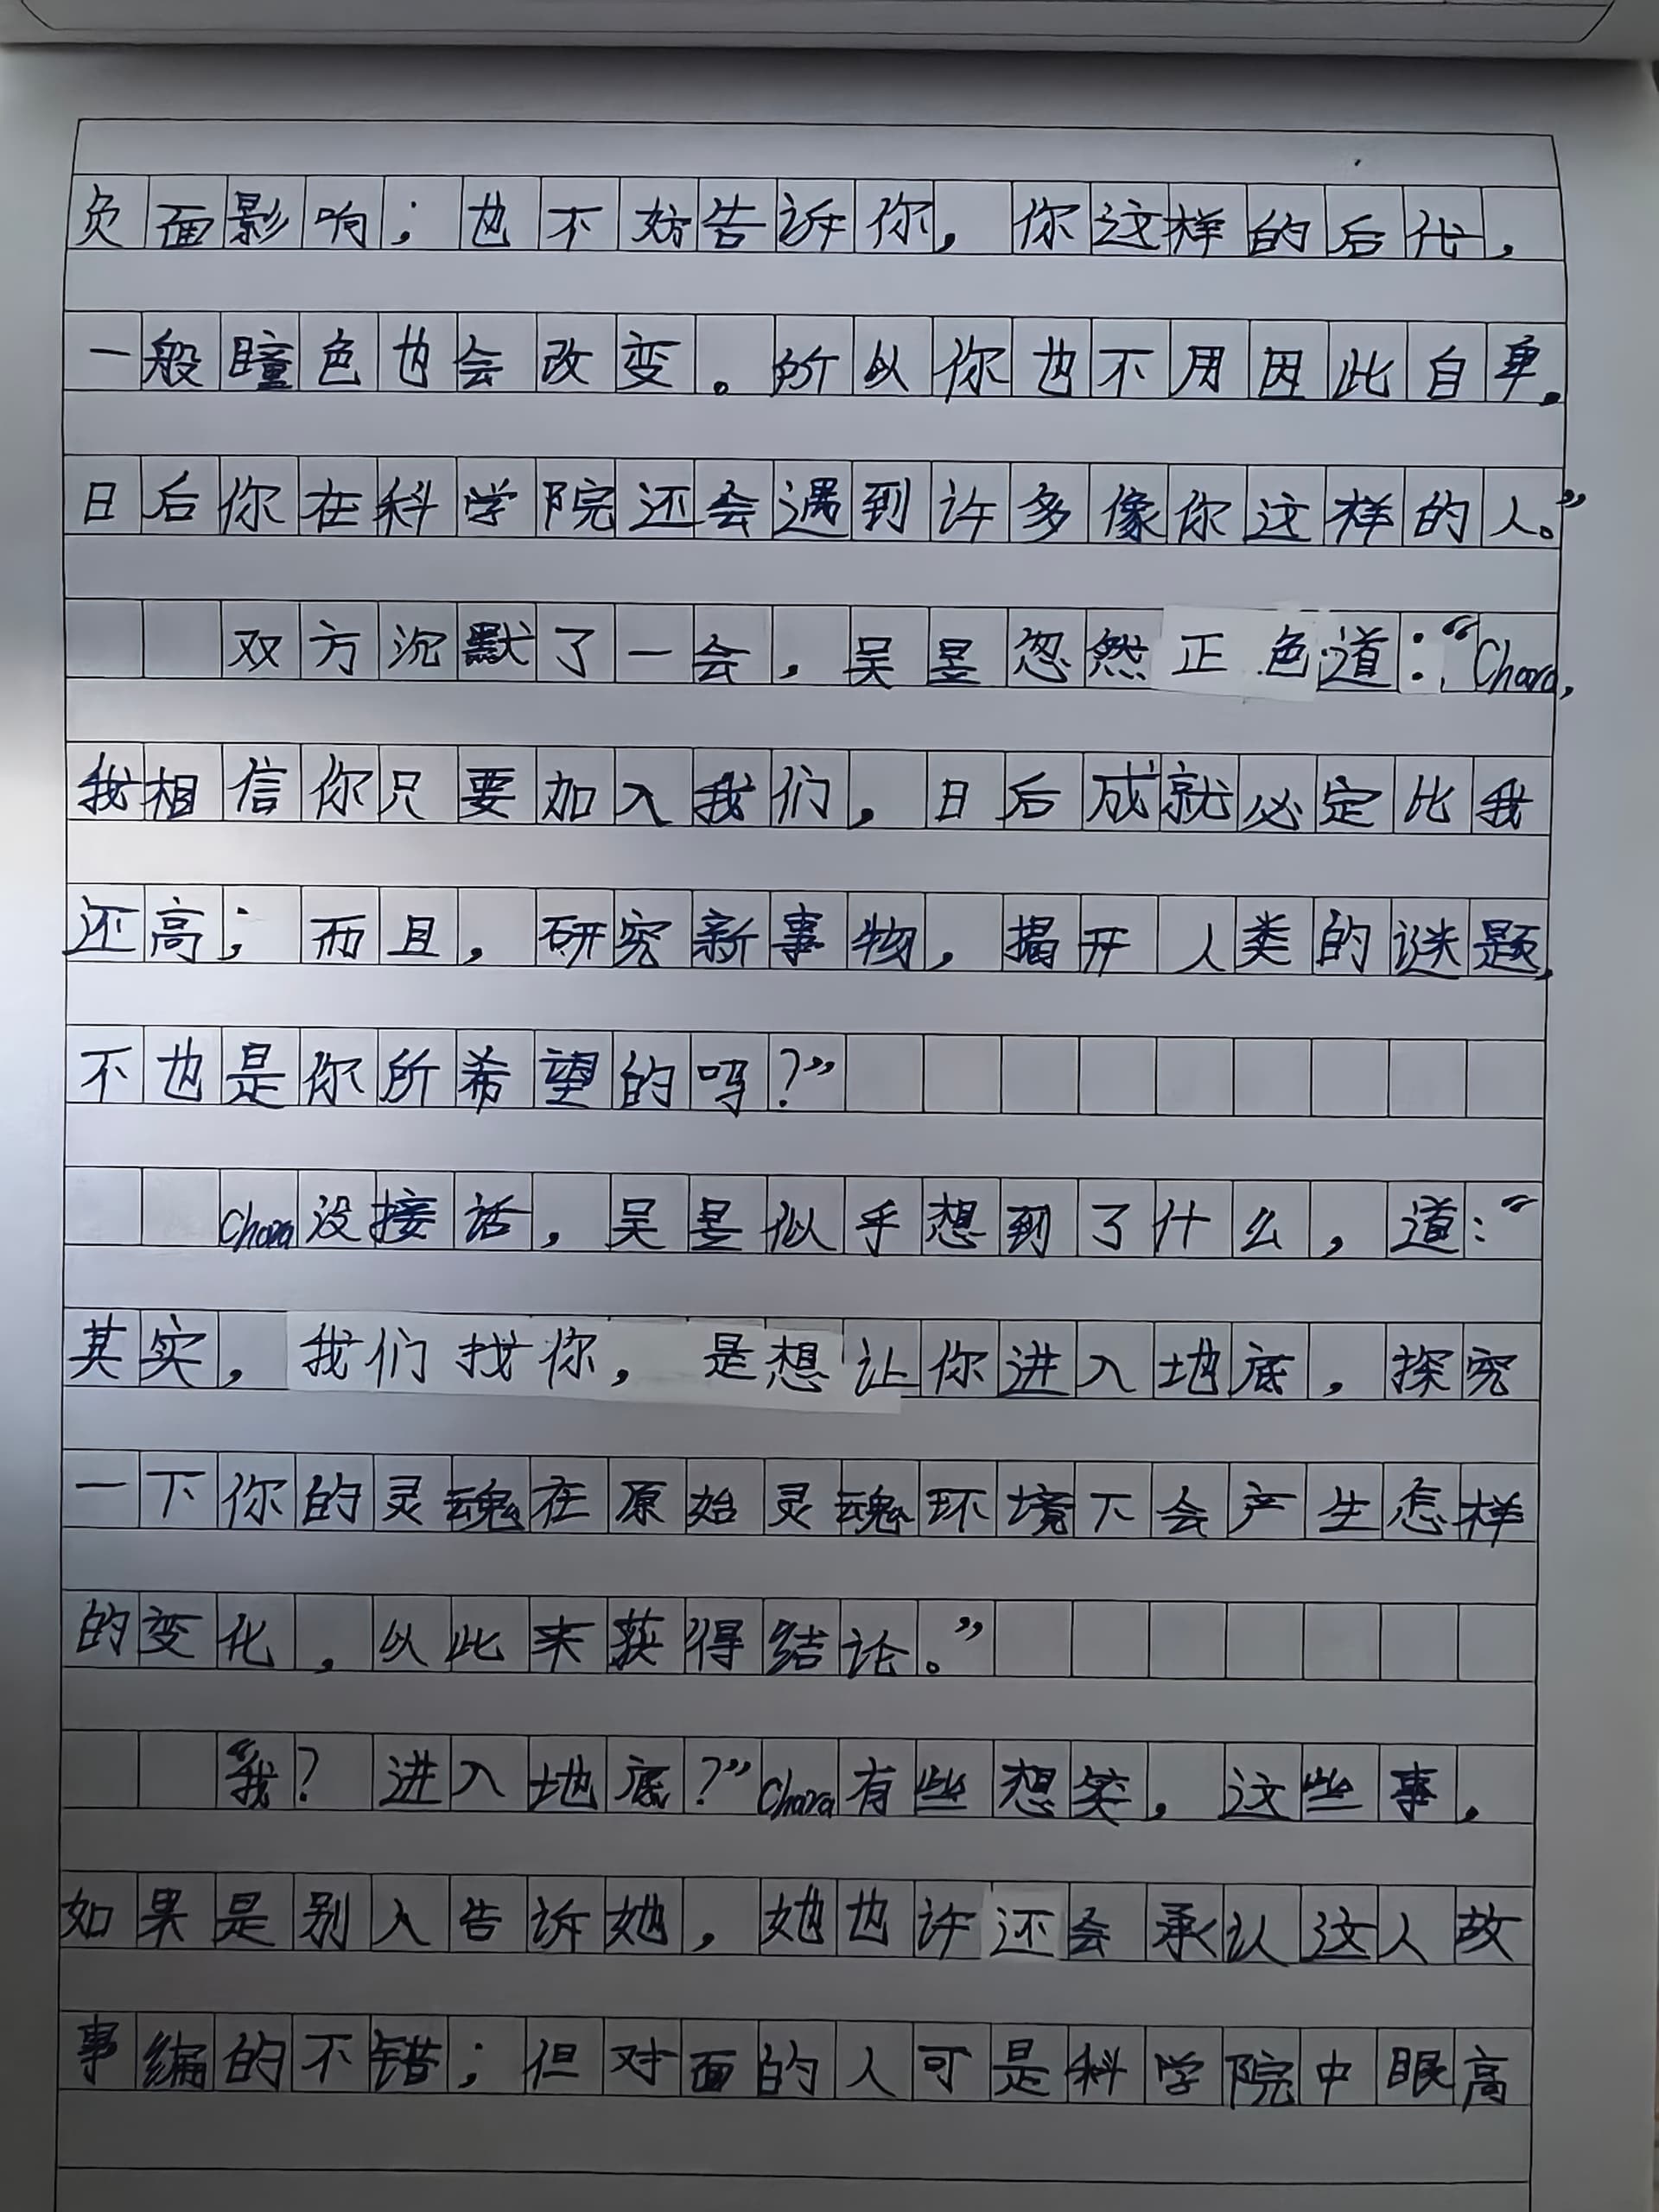 负面影响；也不妨告诉你，你这样的后代，
一般瞳色也会改变。所以你也不用因此自卑。
日后你在科学院还会遇到许多像你这样的人。”
双方沉默了一会，吴昱忽然正色道：“Chara，
我相信你只要加入我们，日后成就必定比我
还高；而且，研究新事物，揭开人类的谜题，
不也是你所希望的吗？”
Chara没接话，吴昱似乎想到了什么，道：“
其实，我们找你，是想让你进入地底，探究
一下你的灵魂在原始灵魂环境下会产生怎样
的变化，以此来获得结论。”
“我？进入地底？”Chara有些想笑，这些事，
如果是别人告诉她，她也许还会承认这人故
事编的不错；但对面的人可是科学院中眼高